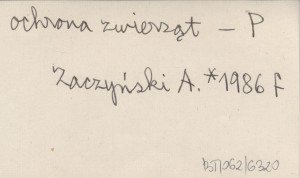 ochrona zwierząt – P
Zaczyński A. *1986 F
DST/062/6320